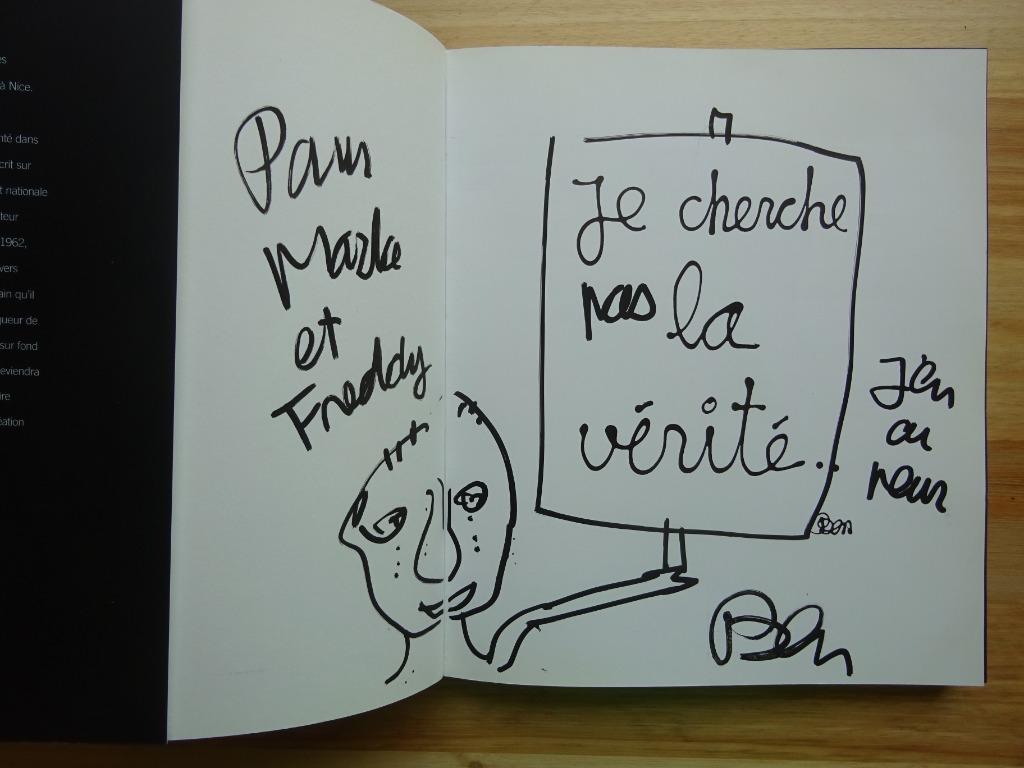 s
à Nice.
nté dans
crit sur
t nationale
teur
1962,
vers
ain qu'il
queur de
sur fond
eviendra
ire
éation
Pour
et
Freddy
Je cherche
pas la
vérité...
Ben
J'en
ai
peur
Ben